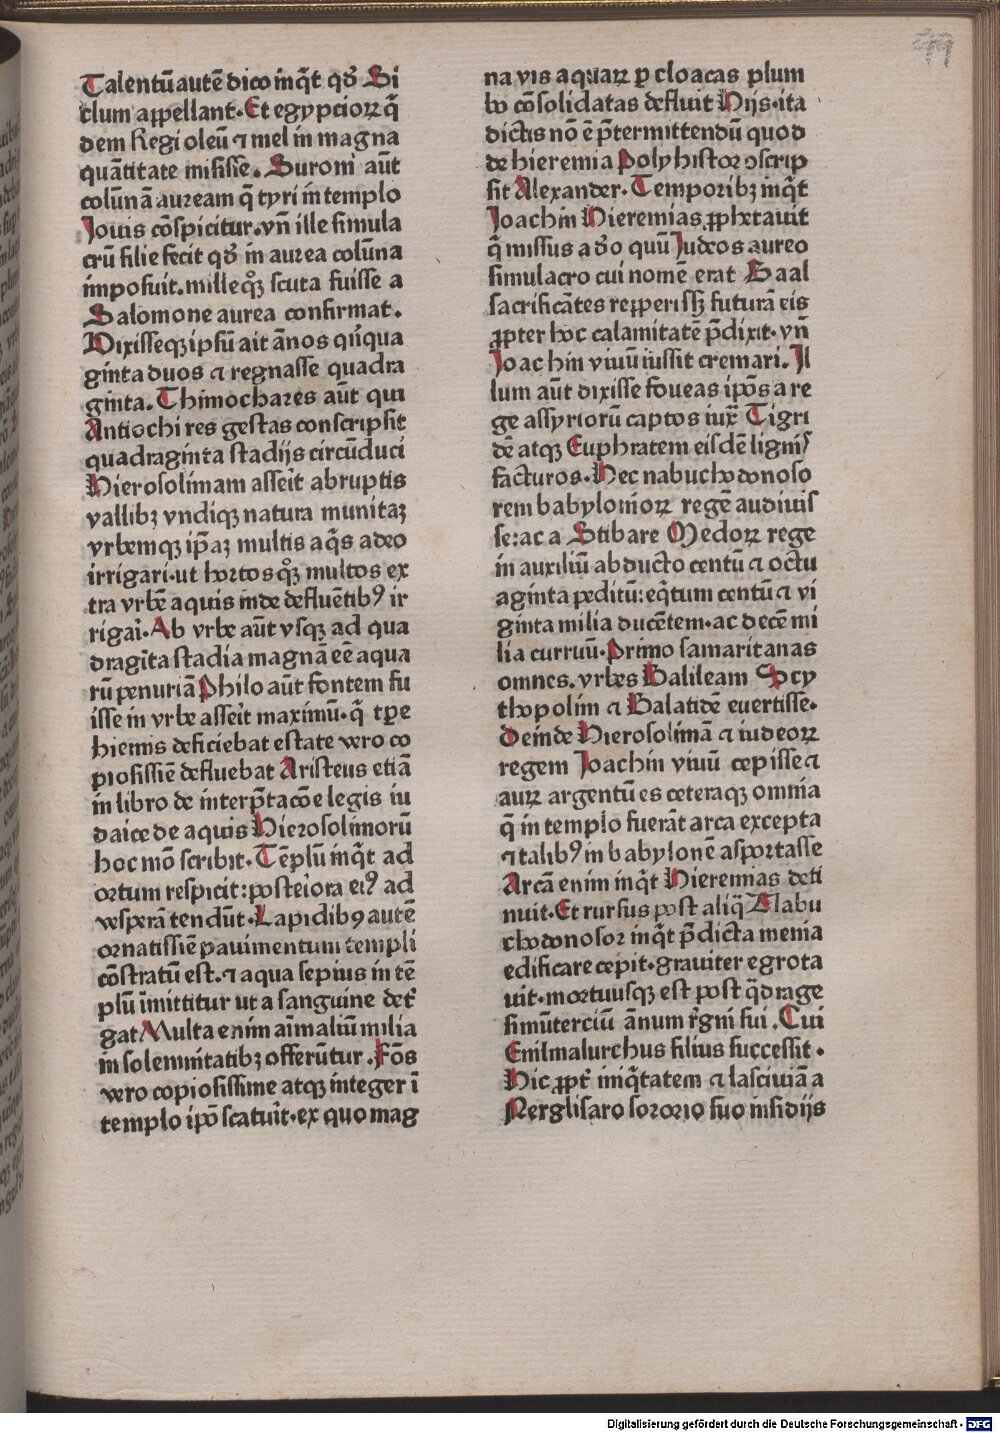 Talentū autē dico inq̄t qd̄ Si
clum appellant. Et egypcioꝝ q̄
dem Regi oleū ⁊ mel in magna
quātitate misisse. Suroni aūt
colūnā auream q̄ tyri in templo
Jouis cōspicitur. vn̄ ille simula
crū filie fecit qd̄ in aurea colūna
imposuit. milleqꝫ scuta fuisse a
Salomone aurea confirmat.
Dixisseqꝫ ipsū ait ānos qn̄qua
ginta duos ⁊ regnasse quadra
ginta. Thimochares aūt qui
Antiochi res gestas conscripsit
quadraginta stadijs circūduci
Hierosolimam asseit abruptis
vallibꝫ vndiqꝫ natura munitaꝫ
vrbemqꝫ ip̄aꝫ multis aq̄s adeo
irrigari. ut hortos qꝫ multos ex
tra vrbē aquis inde defluētibꝰ ir
rigai. Ab vrbe aūt vsqꝫ ad qua
dragīta stadia magnā eē aqua
rū penuriā Philo aūt fontem fu
isse in vrbe asseit maximū. q̄ tp̄e
hiemis deficiebat estate vero co
piosissiē defluebat Aristeus etiā
in libro de interp̄tacōe legis iu
daice de aquis Hierosolimorū
hoc mō scribit. Tēplū inq̄t ad
ortum respicit: posteiora eiꝰ ad
vesperā tendūt. Lapidibꝰ autē
ornatissiē pauimentum templi
cōstratū est. ⁊ aqua sepius in tē
plū īmittitur ut a sanguine det̄
gat Multa enim aīmaliū milia
in solemnitatibꝫ offerūtur. Fōs
vero copiosissime atqꝫ integer ī
templo ip̄o scatuit. ex quo mag
na vis aquaꝝ ꝑ cloacas plum
bo cōsolidatas defluit Hijs. ita
dictis nō ē p̄termittendū quod
de hieremia Polyhistor ꝯscrip
sit Alexander. Temporibꝫ inq̄t
Joachin Hieremias ꝓphetauit
q̄ missus a do quū Judeos aureo
simulacro cui nomē erat Baal
sacrificātes repperissꝫ futurā eis
ꝓpter hoc calamitatē p̄dixit. vn̄
Joachin viuū iussit cremari. Il
lum aūt dixisse foueas ip̄os a re
ge assyriorū captos iux̄ Tigri
dē atqꝫ Euphratem eisdē lignis
facturos. Hec nabuchodonoso
rem babylonioꝝ regē audiuis
se: ac a Stibare Medoꝝ rege
in auxiliū abducto centū ⁊ octu
aginta peditū: eq̄tum centū ⁊ vi
ginta milia ducētem. ac decē mi
lia curruū. Primo samaritanas
omnes. vrbes Galileam Scy
thopolim ⁊ Galatidē euertisse.
Deinde Hierosolimā ⁊ iudeoꝝ
regem Joachin viuū cepisse ⁊
auꝝ argentū es ceteraqꝫ omnia
q̄ in templo fuerāt arca excepta
⁊ talibꝰ in babylonē asportasse
Arcā enim inq̄t Hieremias deti
nuit. Et rursus post aliq̄ Nabu
chodonosor inq̄t p̄dicta menia
edificare cepit. grauiter egrota
uit. mortuusqꝫ est post q̄drage
simūterciū ānum r̄gni sui. Cui
Enilmalurchus filius successit.
Hic ꝓpt̄ iniq̄tatem ⁊ lasciuiā a
Nerglisaro sororio suo insidijs
Digitalisierung gefördert durch die Deutsche Forschungsgemeinschaft - DFG